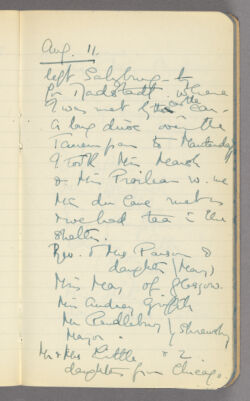 Aug. 11.
left Salzburg to
for Radstadt where
I was met by the car.
A long drive over the
Tauern pass to Mauterndorf
I took Miss
& Miss w. me
Miss du Cane met us
& we had tea in the
shelter.
Rev. & Mrs Parson &
daughter (Mary)
Miss May of Glasgow.
Miss Audrey Griffith
Mr Pendlebury / Shrewsbury
Mayor.
Mr & Mrs Little & 2
daughters from Chicago.